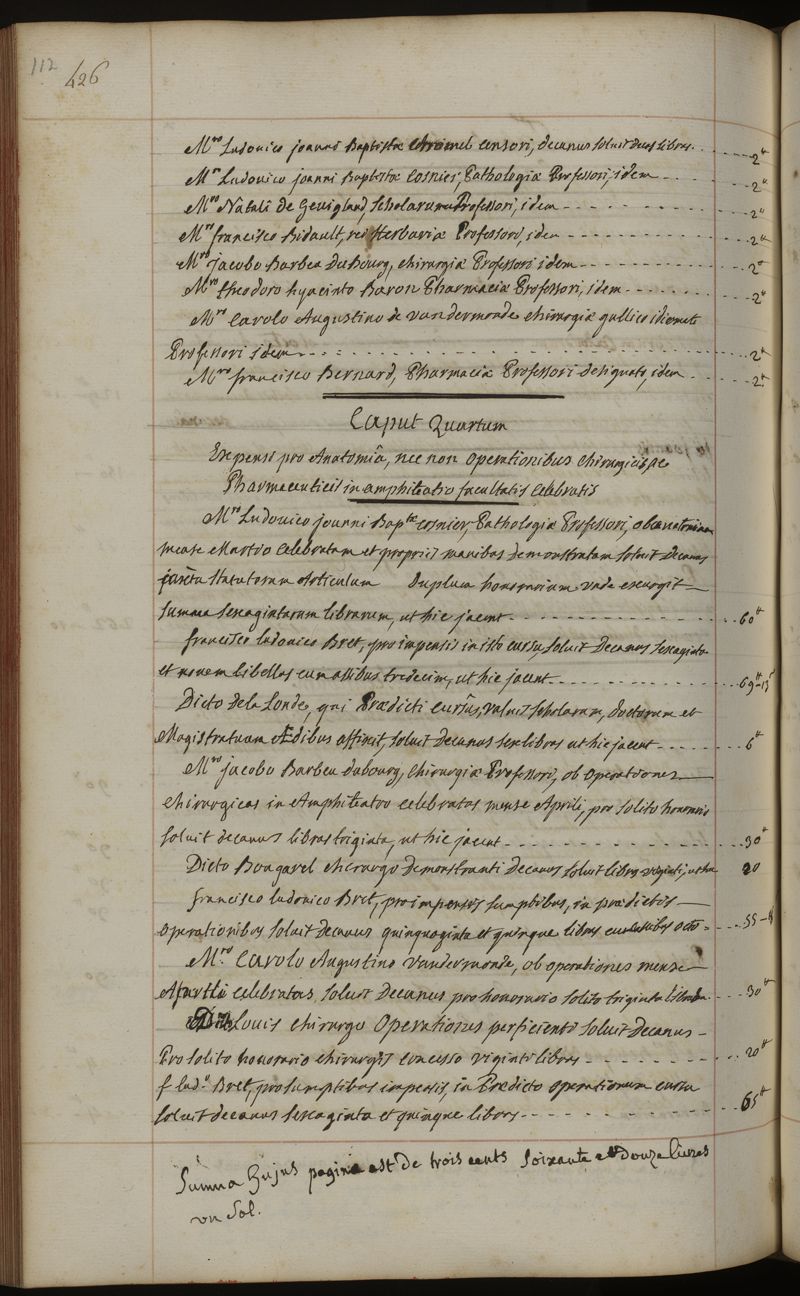 112 426
Mro Ludovico joanni Baptistæ Chomel Censori, decanus soluit duas libras. - - - 2#
Mro Ludovico joanni Baptistæ Cosnier, Pathologiæ Professori, idem - - - 2#
Mro Natali de Gevigland, Scholarum Professori, idem - - - 2#
Mro francisco Bidault, rei Herbariæ Professori, idem - - - 2#
Mro jacobo Barbeu DuBourg, chirurgiæ Professori idem - - - 2#
Mro theodoro hyacinto Baron Pharmaciæ Professori, idem - - - 2#
Mro Carolo Augustino de Vandermonde chirurgiæ gallico idiomate
Professori idem - - - 2#
Mro francisco Bernard, Pharmaciæ Professori designato, idem - - - 2#
Caput Quartum
Expensi pro Anatomiâ, nec non operationibus chirurgicis ac
Pharmaceuticis in amphiteatro facultatis Celebratis
Mro Ludovico joanni Bapte cosnier, Pathologiæ Professori, ob anatomiam
mense Martio Celebratam et propriis manibus demonstratam soluit Decanus
juxta statutorum Articulum duplum honorarium unde exurgit
summa sexagintarum librarum, ut hic jacent - - - 60#
francisco ludovico Bret, pro impensis in isto cursu, soluit Decanus sexaginta
et novem libellas cum assibus tredecim, ut hic jacent - - - 69#-13s
Dicto De la Londe, qui Prædicti cursûs, valvis scholarum, doctorum et
Magistratuum Ædibus affixit, soluit decanus sex libras ut hic jacent - - - 6#
Mro jacobo Barbeu dubourg, chirurgiæ Professori, ob operationes
chirurgicas in Amphiteatro celebratas mense Aprili, pro solito honorario
soluit decanus libras triginta, ut hic jacent - - - 30#
Dicto Bougarel chirurgo demonstranti decanus soluit libras viginti, ut hic 20
francisco ludovico Bret, pro impensis sumptibus, in prædictis
operationibus soluit decanus quinquaginta et quinque libras cum assibus octo = - - - 55-8
Mro Carolo Augustino Vandermonde, ob operationes mense
Martii celebratas soluit decanus pro honorario solito triginta libras - - - 30#
Dno Louis chirurgo operationes perficienti soluit decanus
Pro solito honorario chirurgis concesso viginti libras - - - 20#
f lud.o Bret, pro sumptibus impensis, in Prædicto operationum cursu
soluit decanus sexaginta et quinque libras - - - 65#
Summa hujus paginæ est de trois cents soixante et douze livres
un sol.